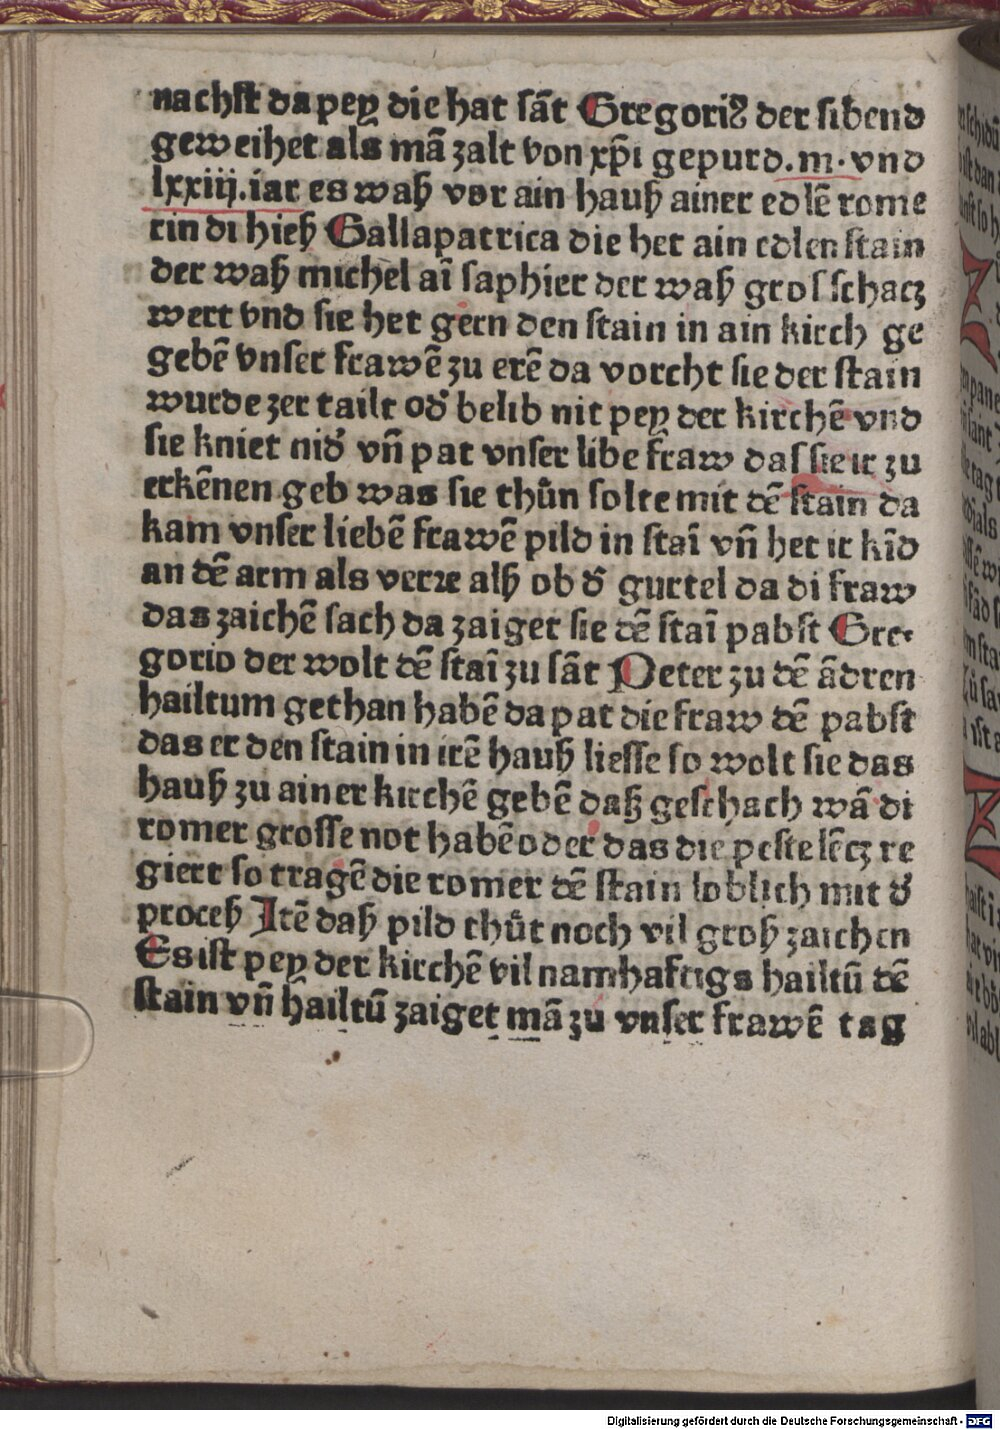 nachst da pey die hat sāt Gregoriꝰ der sibend
geweihet als mā zalt von xp̄i gepurd .m. vnd
lxxiij. iar es waß vor ain hauß ainer edlē rome
rin di hieß Gallapatrica die het ain edlen stain
der waß michel aī saphier der waß gros schacz
wert vnd sie het gern den stain in ain kirch ge
gebē vnser frawē zu erē da vorcht sie der stain
wurde zer tailt od̛ belib nit pey der kirchē vnd
sie kniet nid̛ vn̄ pat vnser libe fraw das sie ir zu
erkēnen geb was sie thůn solte mit dē stain da
kam vnser liebē frawē pild in staī vn̄ het ir kīd
an dē arm als verre alß ob d̛ gurtel da di fraw
das zaichē sach da zaiget sie dē staī pabst Gre⸗
gorio der wolt dē staī zu sāt Peter zu dē ādren
hailtum gethan habē da pat die fraw dē pabst
das er den stain in irē hauß liesse so wolt sie das
hauß zu ainer kirchē gebē daß geschach wā di
romer grosse not habē oder das die pestelēcz re
giert so tragē die romer dē stain loblich mit d̛
proceß Itē daß pild thůt noch vil groß zaichen
Es ist pey der kirchē vil namhaftigs hailtū dē
stain vn̄ hailtū zaiget mā zu vnser frawē tag
Digitalisierung gefördert durch die Deutsche Forschungsgemeinschaft - DFG